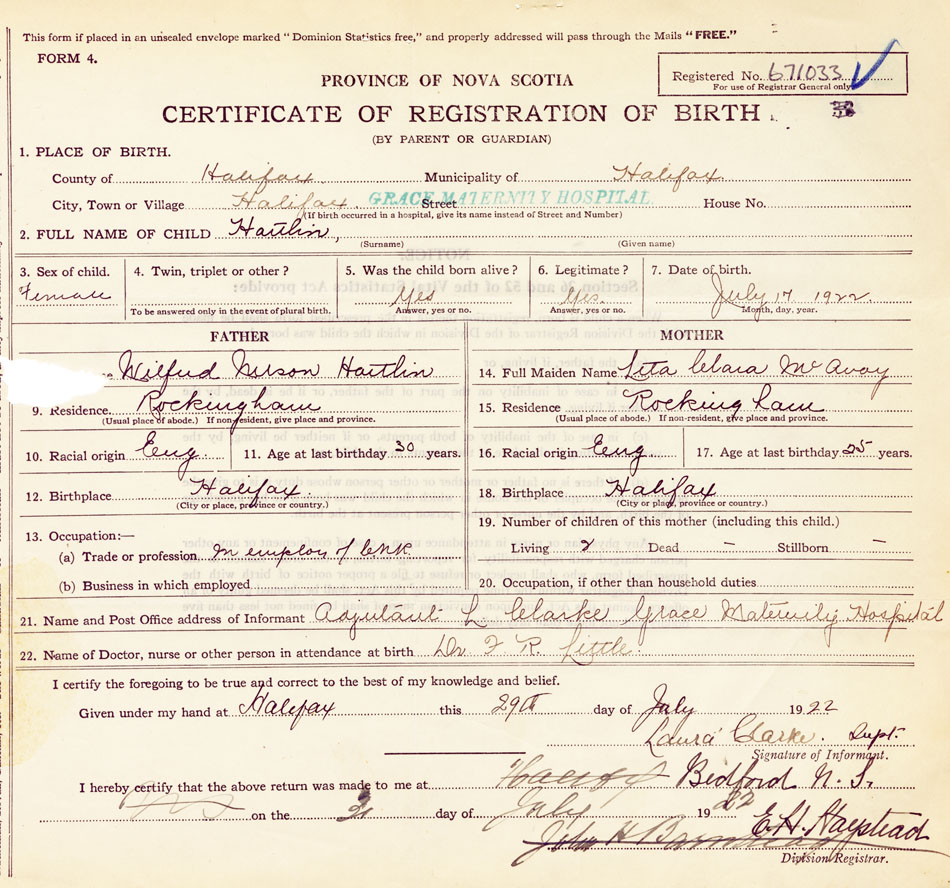 This form if placed in an unsealed envelope marked "Dominion Statistics free," and properly addressed will pass through the Mails "FREE."
FORM 4.
PROVINCE OF NOVA SCOTIA
Registered No. 671033
For use of Registrar General only
CERTIFICATE OF REGISTRATION OF BIRTH
(BY PARENT OR GUARDIAN)
1. PLACE OF BIRTH.
County of Halifax Municipality of Halifax
City, Town or Village Halifax Street GRACE MATERNITY HOSPITAL House No.
(If birth occurred in a hospital, give its name instead of Street and Number)
2. FULL NAME OF CHILD Hartlin,
(Surname) (Given name)
3. Sex of child. 4. Twin, triplet or other? 5. Was the child born alive? 6. Legitimate? 7. Date of birth.
Female Yes Yes. July 17 1922.
To be answered only in the event of plural birth. Answer, yes or no. Answer, yes or no. Month, day, year.
FATHER MOTHER
Wilfred Hartlin 14. Full Maiden Name Lita Clara McAvoy
9. Residence. Rockingham 15. Residence Rockingham
(Usual place of abode.) If non-resident, give place and province. (Usual place of abode.) If non-resident, give place and province.
10. Racial origin Eng. 11. Age at last birthday 30 years. 16. Racial origin Eng. 17. Age at last birthday 25 years.
12. Birthplace Halifax. 18. Birthplace Halifax
(City or place, province or country.) (City or place, province or country.)
13. Occupation:— 19. Number of children of this mother (including this child.)
(a) Trade or profession In employ of CNR Living 2 Dead – Stillborn –
(b) Business in which employed 20. Occupation, if other than household duties
21. Name and Post Office address of Informant Adjutant L Clarke Grace Maternity Hospital
22. Name of Doctor, nurse or other person in attendance at birth Dr. F. R. Little.
I certify the foregoing to be true and correct to the best of my knowledge and belief.
Given under my hand at Halifax this 29th day of July 1922
Laura Clarke. Supt.
Signature of Informant.
I hereby certify that the above return was made to me at Bedford N. S.
on the 31 day of July 1922
E. H. Haystead
Division Registrar.